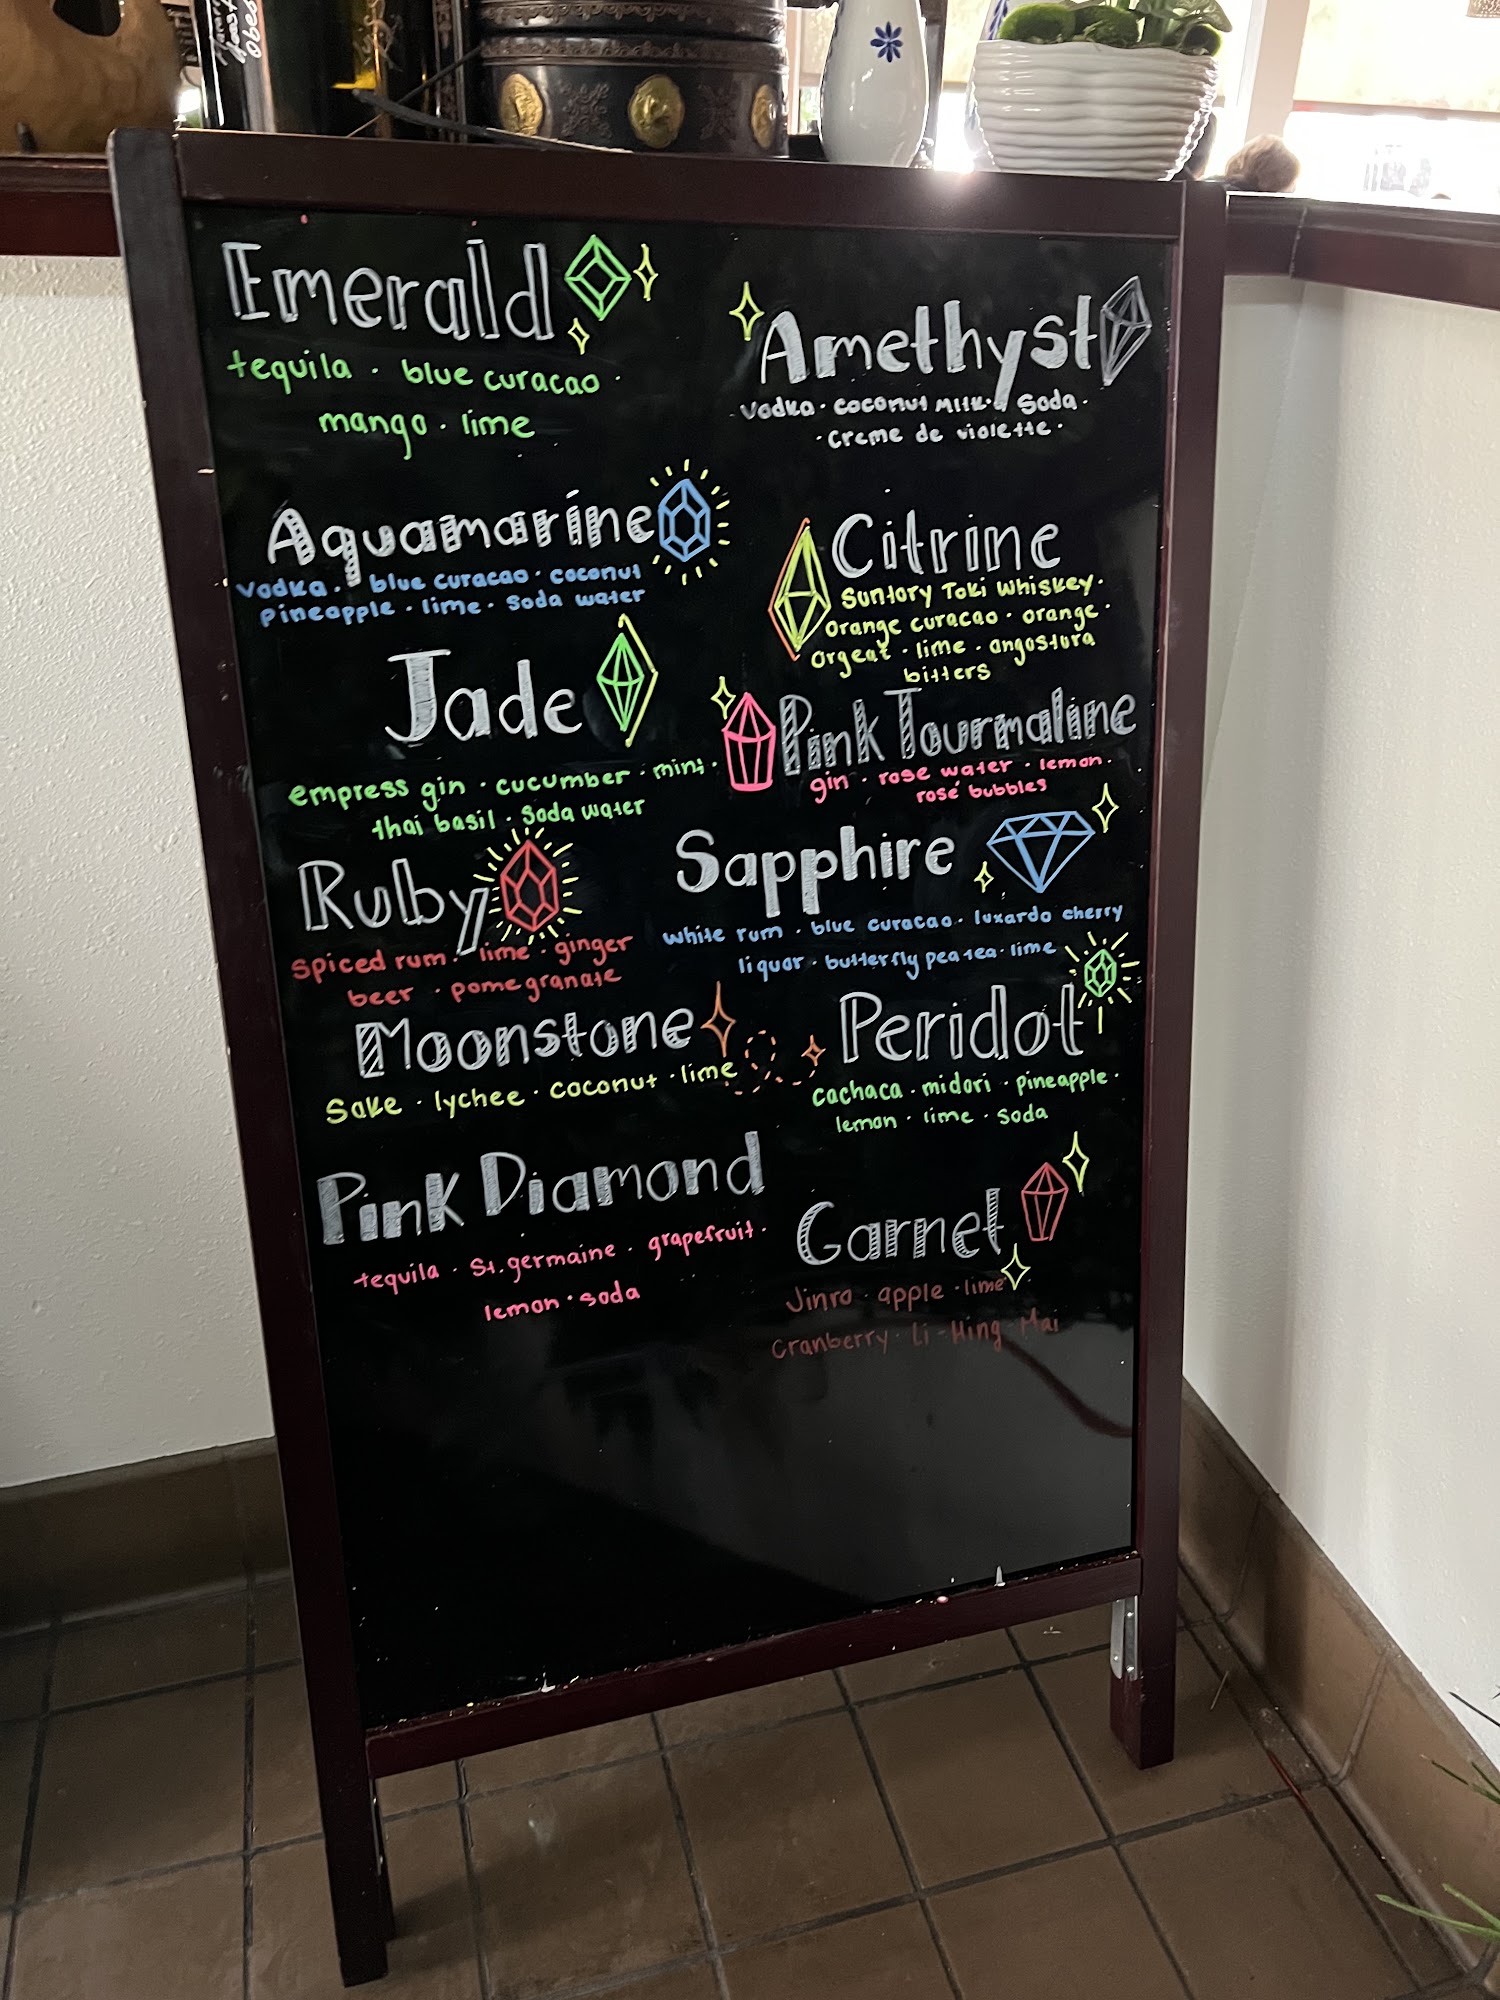 Emerald
tequila · blue curacao ·
mango · lime
Amethyst
vodka · coconut milk · Soda ·
· Creme de violette ·
Aquamarine
vodka · blue curacao · coconut
pineapple · lime · Soda water
Citrine
Suntory Toki Whiskey ·
Orange curacao · orange ·
Orgeat · lime · angostura
bitters
Jade
empress gin · cucumber · mint ·
thai basil · Soda water
Pink Tourmaline
gin · rose water · lemon ·
rosé bubbles
Ruby
Spiced rum · lime · ginger
beer · pomegranate
Sapphire
white rum · blue curacao · luxardo cherry
liquor · butterfly pea tea · lime
Moonstone
Sake · lychee · coconut · lime
Peridot
cachaca · midori · pineapple ·
lemon · lime · soda
Pink Diamond
tequila · St. germaine · grapefruit ·
lemon · soda
Garnet
Jinro · apple · lime
Cranberry · Li-Hing-Mui